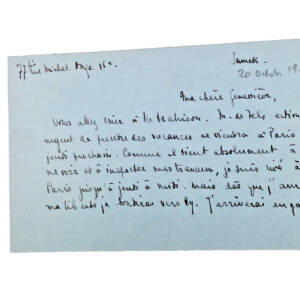 77 bis rue Michel. Ange 16e.
Samedi.
20 Octob 19
Ma chère Geneviève,
Vous allez crier à la trahison. M. de Fels estime
urgent de prendre des vacances ne viendra à Paris
jeudi prochain. Comme il tient absolument à
me voir et à inspecter mes travaux, je suis rivé à
Paris jusqu'à jeudi à midi. Mais dès que j'aurai
ma liberté je bondirai vers By. J'arriverai en ga